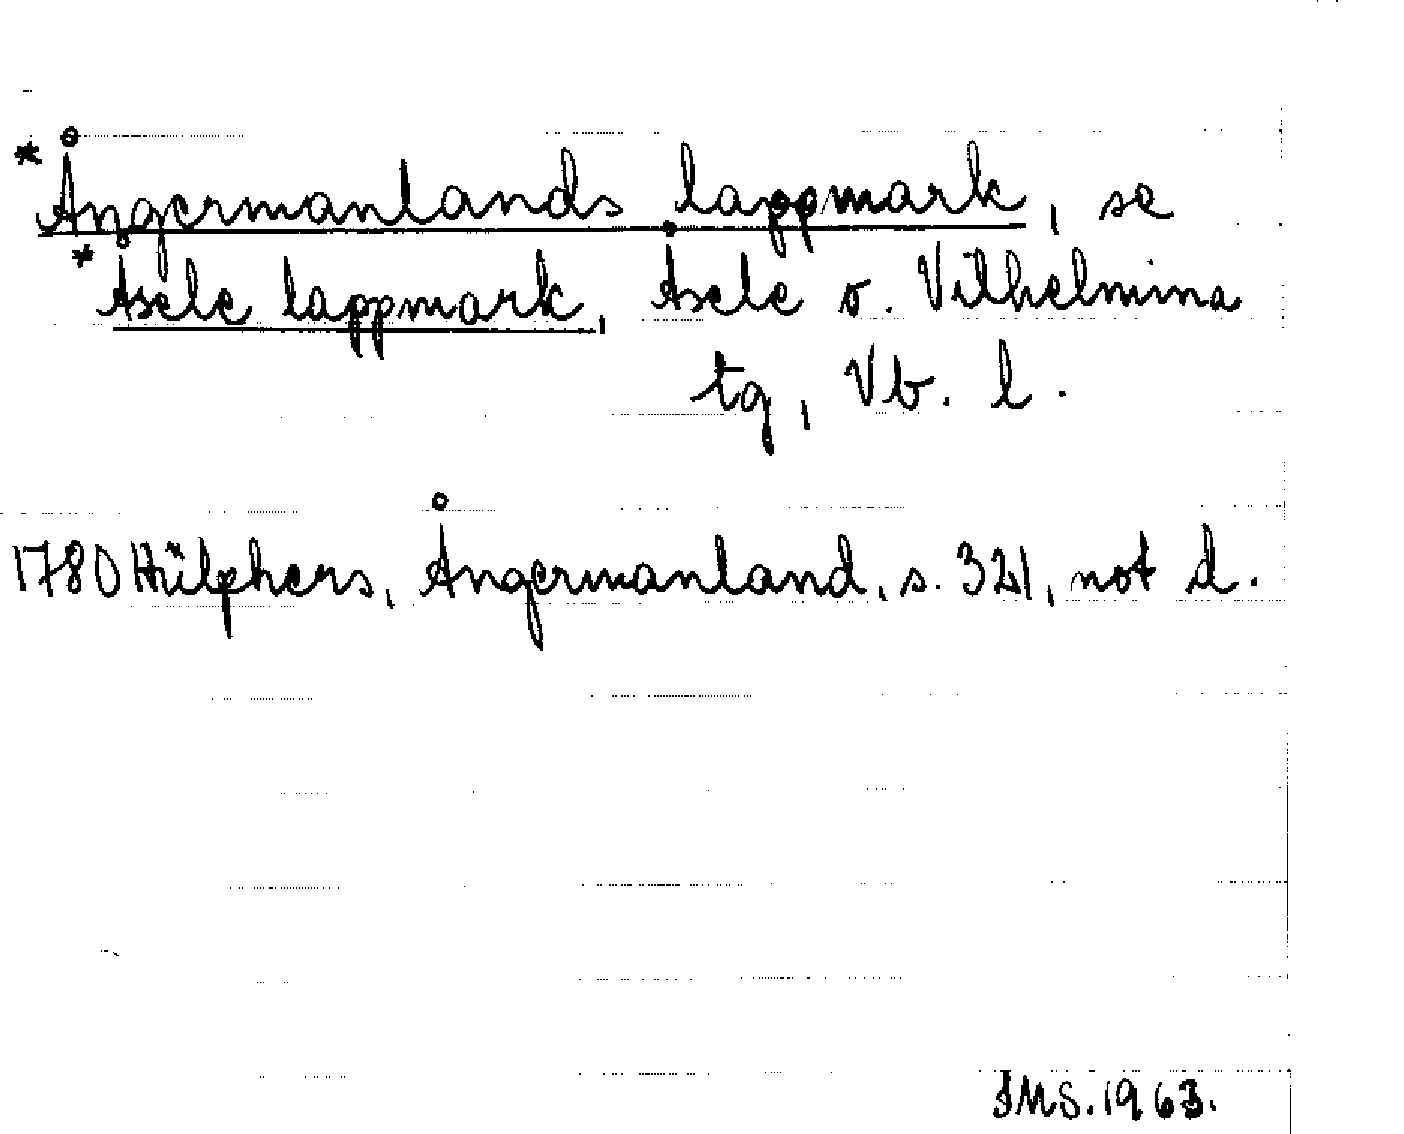 * Ångermanlands lappmark, se
* Åsele lappmark, Åsele o. Vilhelmina
tg, Vb. l.
1780 Hülphers, Ångermanland, s. 321, not d.
IMS. 1963.